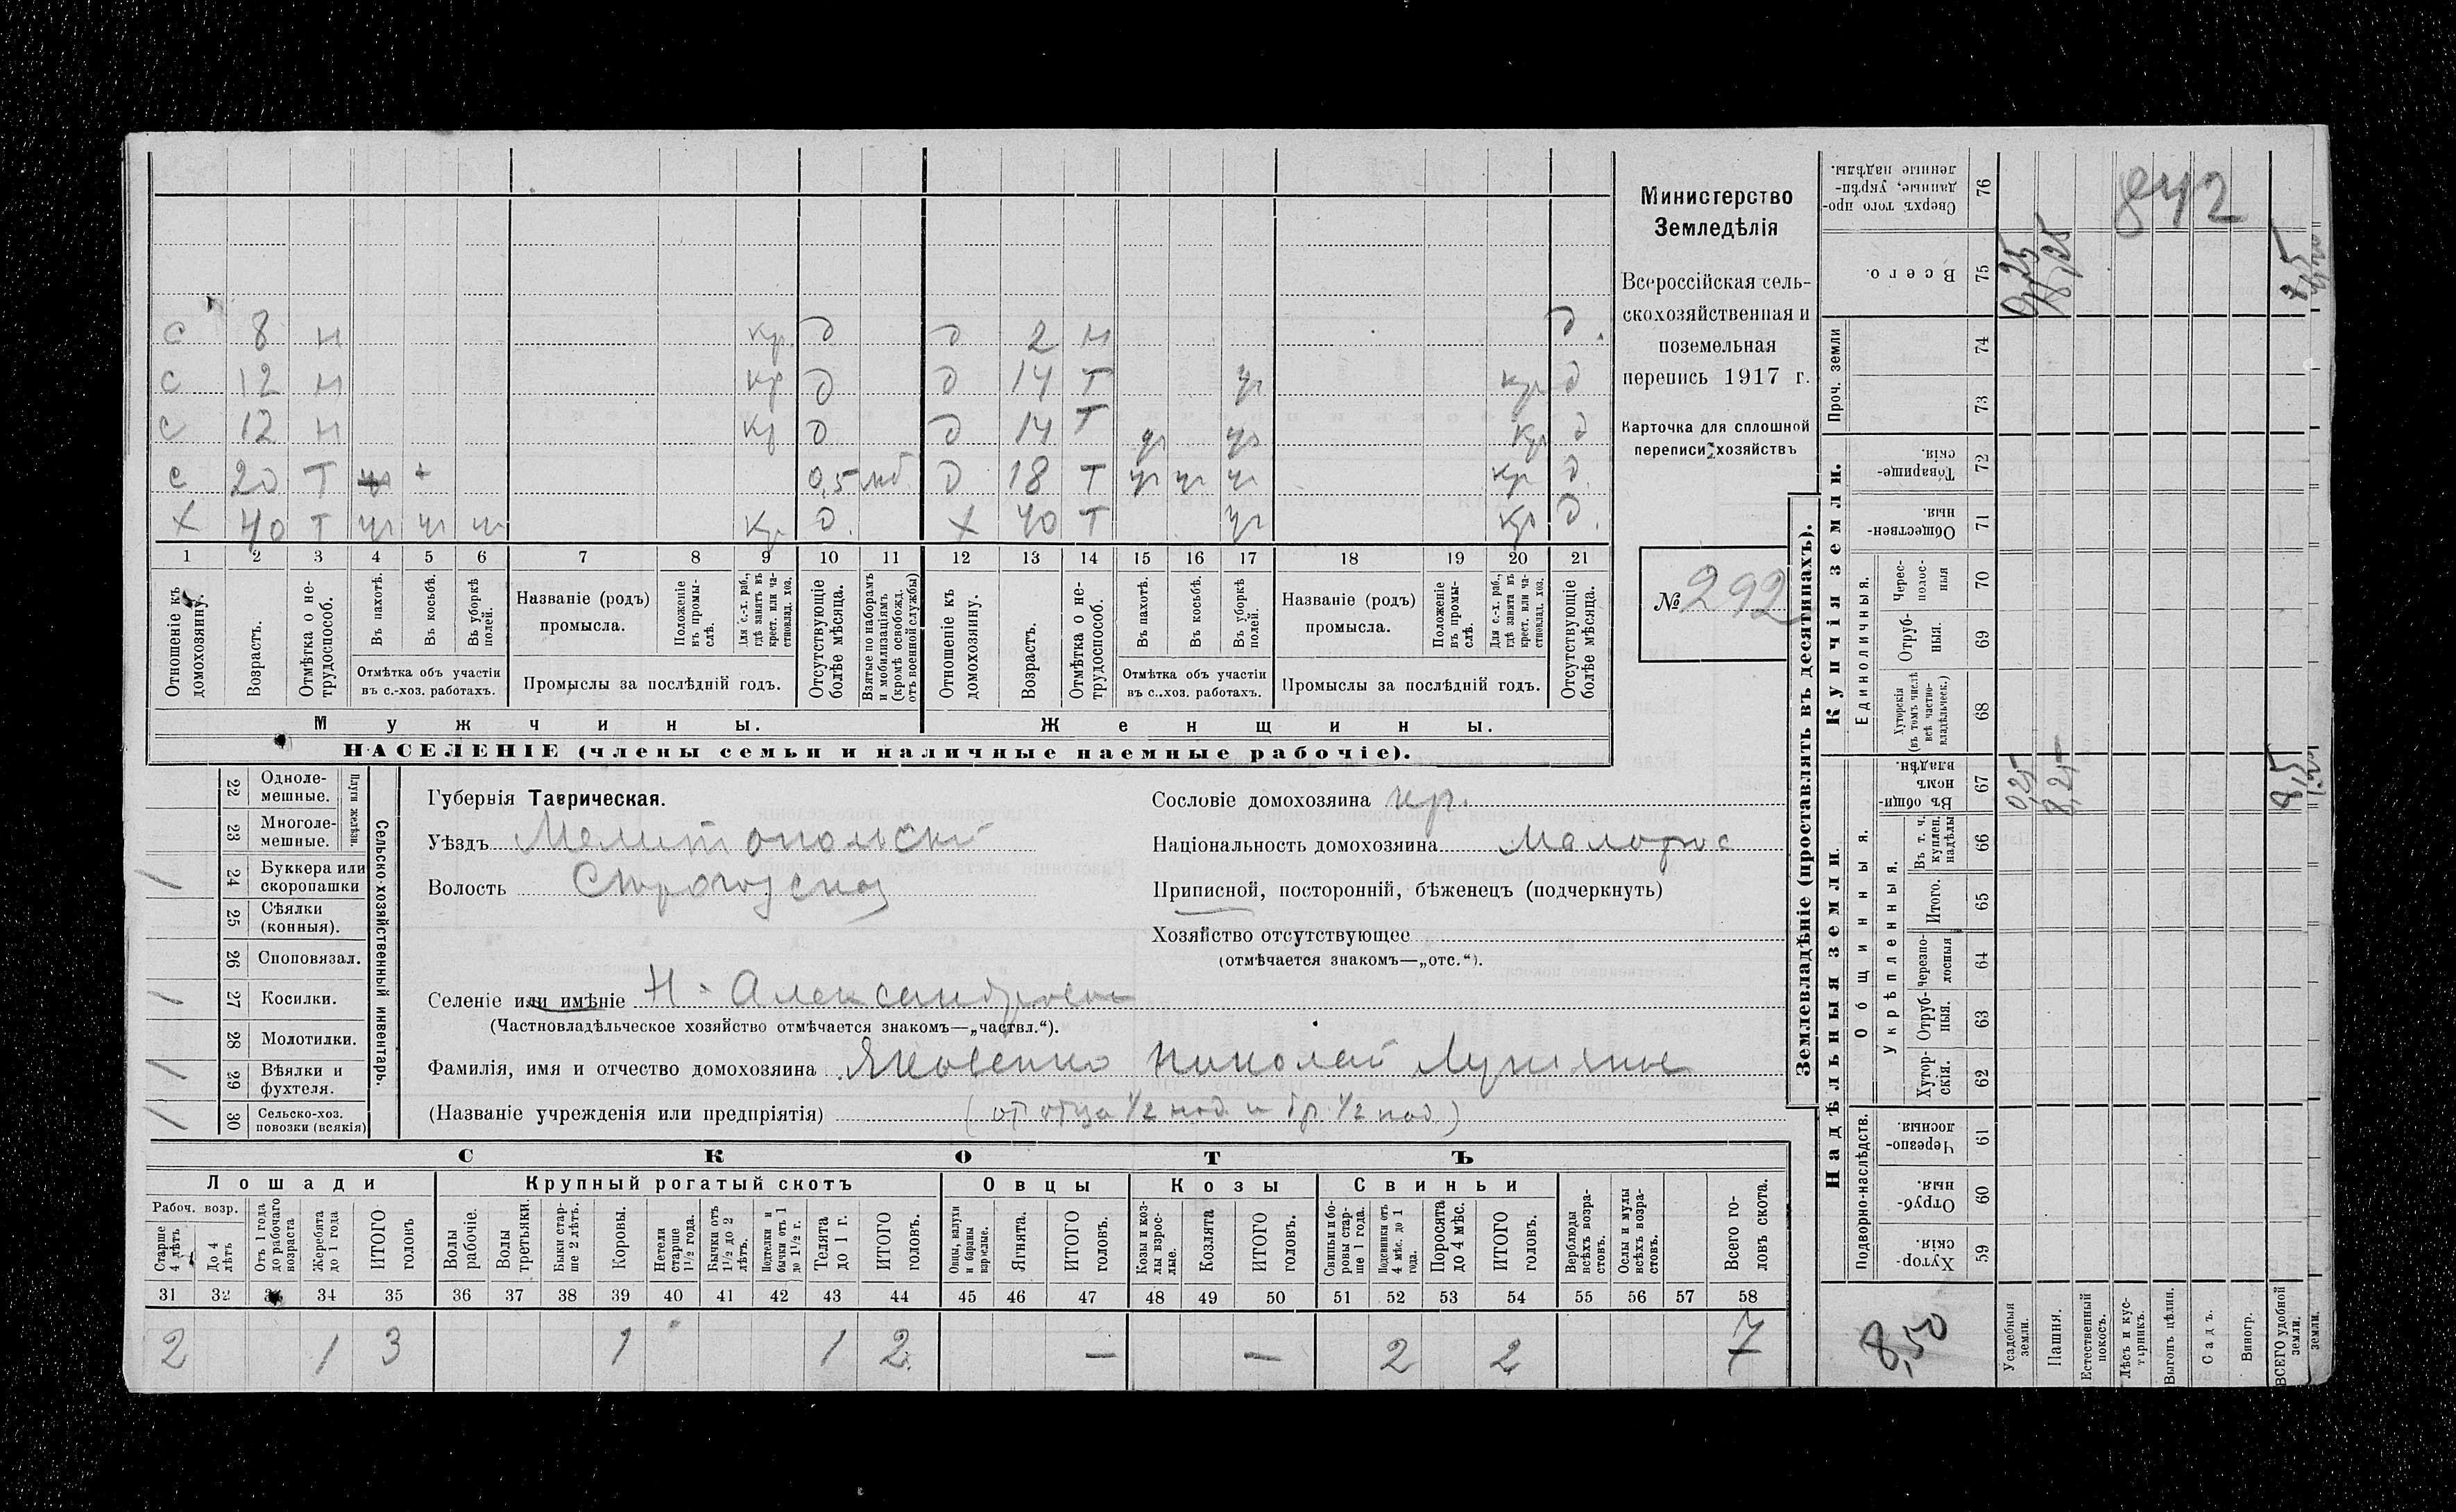 С 8 н кр д д 2 н д.
С 12 н кр д д 14 Т уг кр д
С 12 н кр д д 14 Т уг уг кр д
С 20 Т + 0,5 мб д 18 Т уг уг уг кр д.
Х 40 Т уг уг уг кр д. Х 40 Т уг кр д.
1 2 3 4 5 6 7 8 9 10 11 12 13 14 15 16 17 18 19 20 21
Отношеніе къ домохозяину.
Возрастъ.
Отмѣтка о нетрудоспособ.
Въ пахотѣ.
Въ косьбѣ.
Въ уборкѣ полей.
Отмѣтка объ участіи
въ с.-хоз. работахъ.
Названіе (родъ)
промысла.
Положеніе въ промыслѣ.
Для с.-х. раб., гдѣ занятъ въ крест. или частновлад. хоз.
Промыслы за послѣдній годъ.
Отсутствующіе болѣе мѣсяца.
Взятые по наборамъ и мобилизаціямъ (кромѣ освобожд. отъ военной службы)
Отношеніе къ домохозяину.
Возрастъ.
Отмѣтка о нетрудоспособ.
Въ пахотѣ.
Въ косьбѣ.
Въ уборкѣ полей.
Отмѣтка объ участіи
въ с..хоз. работахъ.
Названіе (родъ)
промысла.
Положеніе въ промыслѣ.
Для с.-х. раб., гдѣ занята въ крест. или частновлад. хоз.
Промыслы за послѣдній годъ.
Отсутствующіе болѣе мѣсяца.
Мужчины.
Женщины.
НАСЕЛЕНІЕ (члены семьи и наличные наемные рабочіе).
Министерство
Земледѣлія
Всероссійская сель-
скохозяйственная и
поземельная
перепись 1917 г.
Карточка для сплошной
переписи хозяйствъ
№ 292
Сельско-хозяйственный инвентарь.
Плуги желѣзн.
22 Одноле-
мешные.
23 Многоле-
мешные.
/ 24 Буккера или
скоропашки
25 Сѣялки
(конныя).
26 Споповязал.
/ 27 Косилки.
28 Молотилки.
/ 29 Вѣялки и
фухтеля.
/ 30 Сельско-хоз.
повозки (всякія)
Губернія Таврическая.
Уѣздъ Мелитопольскій
Волость
Селеніе или имѣніе Н-Александровка
(Частновладѣльческое хозяйство отмѣчается знакомъ—„частвл.“).
Фамилія, имя и отчество домохозяина Яковенко Николай
(Названіе учрежденія или предпріятія) (от отца 1/2 над. и бр. 1/2 над.)
Сословіе домохозяина кр.
Національность домохозяина Малорос
Приписной, посторонній, бѣженецъ (подчеркнуть)
Хозяйство отсутствующее
(отмѣчается знакомъ—„отс.“).
СКОТЪ
Лошади
Крупный рогатый скотъ
Овцы
Козы
Свиньи
Рабоч. возр.
Старше 4 лѣтъ
До 4 лѣтъ
Отъ 1 года до рабочаго возраста
Жеребята до 1 года
ИТОГО головъ
Волы рабочіе.
Волы третьяки.
Быки старше 2 лѣтъ.
Коровы.
Нетели старше 1½ года.
Бычки отъ 1½ до 2 лѣтъ.
Подтелки и бычки отъ 1 до 1½ г.
Телята до 1 г.
ИТОГО головъ.
Овцы, валухи и бараны взрослые.
Ягнята.
ИТОГО головъ.
Козы и козлы взрослые.
Козлята
ИТОГО головъ.
Свиньи и боровы старше 1 года.
Подсвинки отъ 4 мѣс. до 1 года.
Поросята до 4 мѣс.
ИТОГО головъ.
Верблюды всѣхъ возрастовъ.
Ослы и мулы всѣхъ возрастовъ.
Всего головъ скота.
31 32 33 34 35 36 37 38 39 40 41 42 43 44 45 46 47 48 49 50 51 52 53 54 55 56 57 58
2 1 3 1 1 2 — — 2 2 7
Землевладѣніе (проставлять въ десятинахъ).
Купчія земли.
Надѣльныя земли.
842
Сверхъ того проданные, укрѣпленные надѣлы. 76
Всего. 75 0,25 8,25 8,5
Проч. земли 74
73
Товарищескія. 72
Общественныя. 71
Единоличныя.
Чересполосныя 70
Отрубныя. 69
Хуторскія (въ томъ числѣ всѣ частновладѣльческ.) 68
Общинныя.
Въ общинномъ владѣн. 67 0,25 8,25 8,5
Укрѣпленныя.
Въ т. ч. куплен. надѣлы 66
Итого. 65
Черезполосныя 64
Отрубныя. 63
Хуторскія. 62
Подворно-наслѣдств.
Черезполосныя. 61
Отрубныя. 60
Хуторскія. 59
8,50
Усадебныя земли.
Пашня.
Естественный покосъ.
Лѣсъ и кустарникъ.
Выгонъ цѣлин.
Садъ.
Виногр.
ВСЕГО удобной земли.
земли.